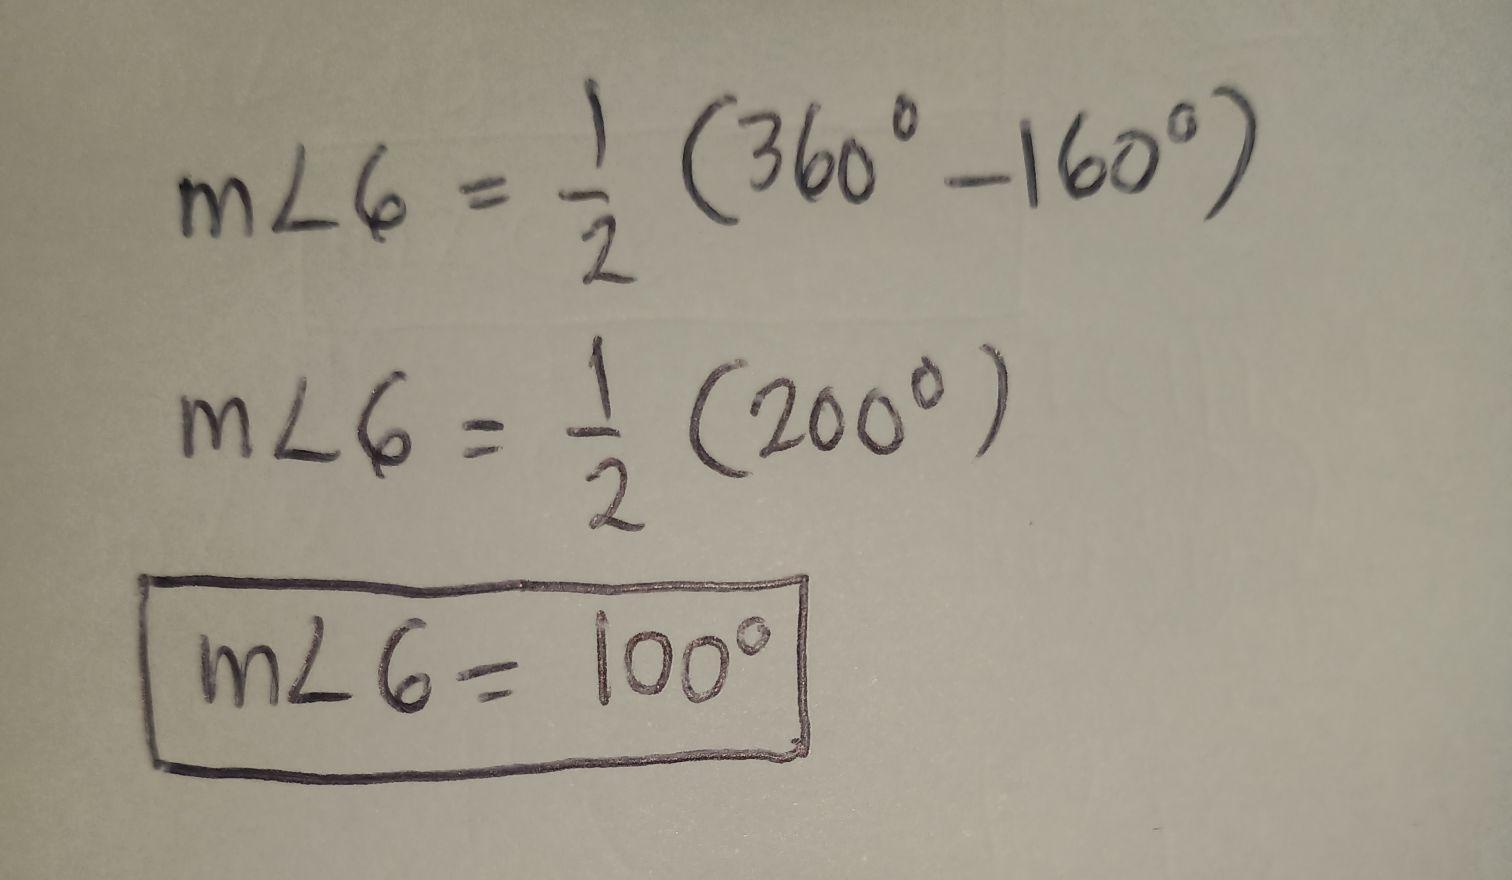 m∠6 = 1/2 (360° - 160°)
m∠6 = 1/2 (200°)
m∠6 = 100°